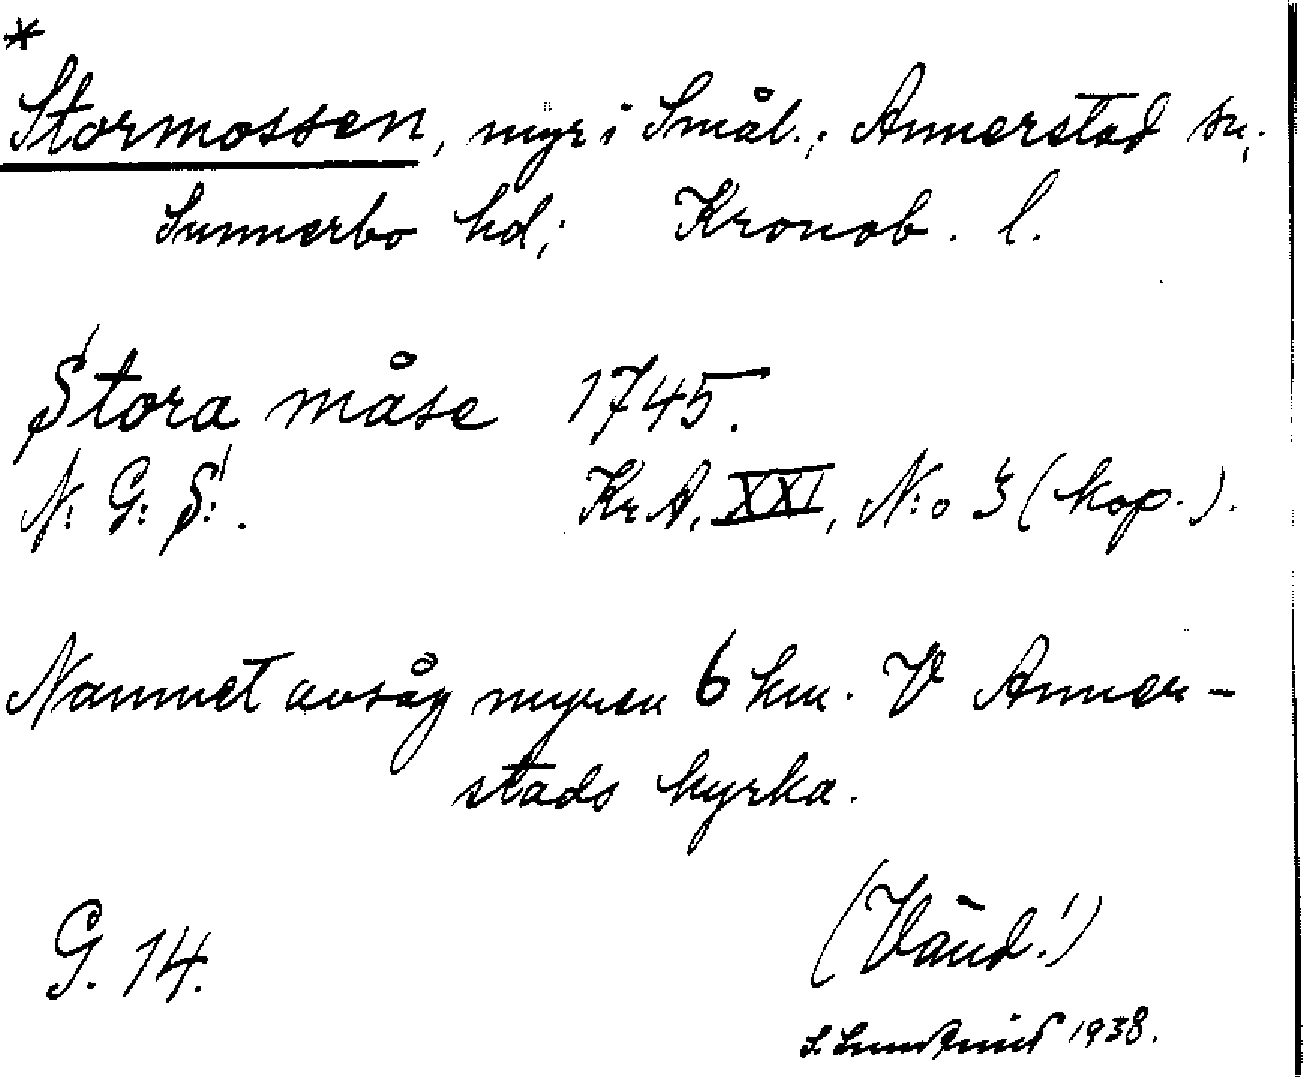 *
Stormossen, myr i Smål.; Annerstad sn;
Sunnerbo hd; Kronob. l.
Stora måse 1745.
N: G: S: . Kr A, XXI, N:o 3 (kop.).
Namnet avsåg myren 6 km. V Anner-
stads kyrka.
G. 14.
(Vänd!)
S. 1938.